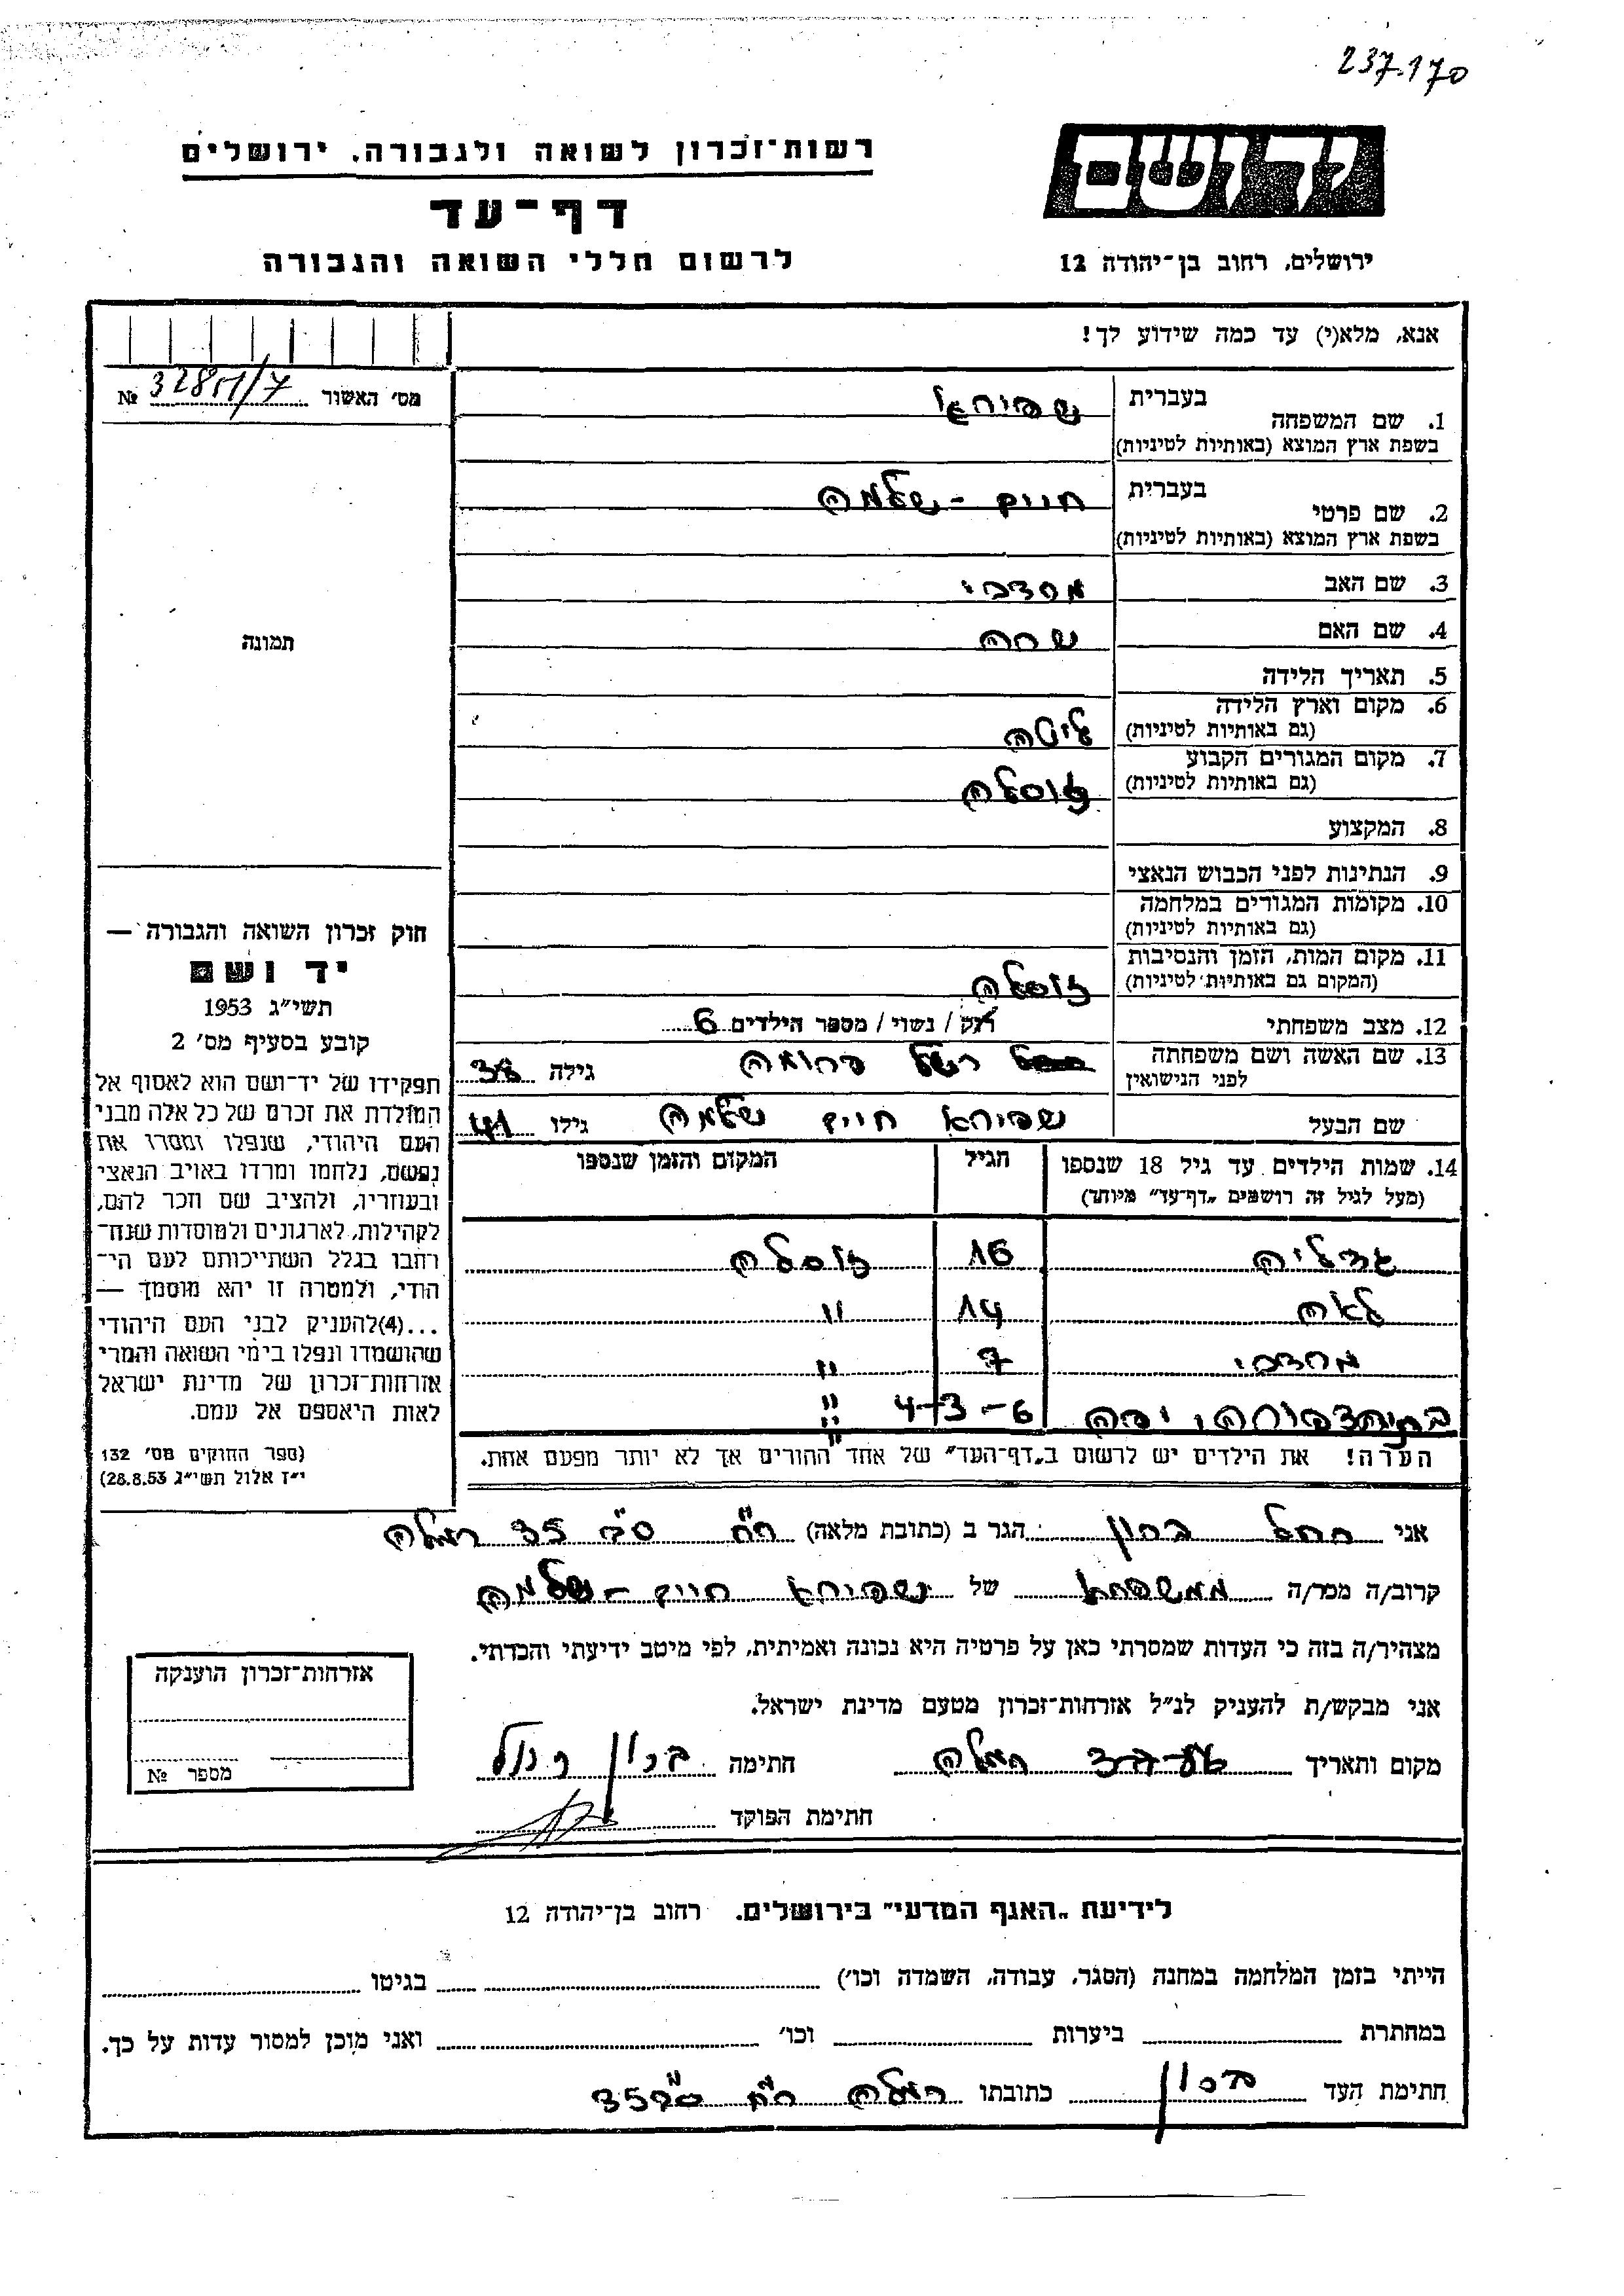 237-170
רשות־זכרון לשואה ולגבורה, ירושלים
יד ושם
דף־עד
לרשום חללי השואה והגבורה
ירושלים, רחוב בן־יהודה 12
אנא, מלא(י) עד כמה שידוע לך!
מס׳ האשור № 3
בעברית
1. שם המשפחה שפירא
בשפת ארץ המוצא (באותיות לטיניות)
בעברית
2. שם פרטי חיים - שלמה
בשפת ארץ המוצא (באותיות לטיניות)
3. שם האב מרדכי
4. שם האם שרה
5. תאריך הלידה
6. מקום וארץ הלידה ליטה
(גם באותיות לטיניות)
7. מקום המגורים הקבוע
(גם באותיות לטיניות)
8. המקצוע
9. הנתינות לפני הכבוש הנאצי
10. מקומות המגורים במלחמה
(גם באותיות לטיניות)
11. מקום המות, הזמן והנסיבות
(המקום גם באותיות לטיניות)
12. מצב משפחתי רוק / נשוי / מספר הילדים 6
13. שם האשה ושם משפחתה
לפני הנישואין גילה 38
שם הבעל שפירא חיים שלמה גילו 41
14. שמות הילדים עד גיל 18 שנספו הגיל המקום והזמן שנספו
(מעל לגיל זה רושמים „דף־עד” מיוחד)
גדליה 16
לאה 14 "
מרדכי 7 "
6-3-4 "
הערה! את הילדים יש לרשום ב„דף־העד” של אחד ההורים אך לא יותר מפעם אחת.
תמונה
חוק זכרון השואה והגבורה —
יד ושם
תשי״ג 1953
קובע בסעיף מס׳ 2
תפקידו של יד־ושם הוא לאסוף אל
המולדת את זכרם של כל אלה מבני
העם היהודי, שנפלו ומסרו את
נפשם, נלחמו ומרדו באויב הנאצי
ובעוזריו, ולהציב שם וזכר להם,
לקהילות, לארגונים ולמוסדות שנח־
רבו בגלל השתייכותם לעם הי־
הודי, ולמטרה זו יהא מוסמך —
...(4)להעניק לבני העם היהודי
שהושמדו ונפלו בימי השואה והמרי
אזרחות־זכרון של מדינת ישראל
לאות היאספם אל עמם.
(ספר החוקים מס׳ 132
י״ז אלול תשי״ג 28.8.53)
אני רחל ברון הגר ב (כתובת מלאה) 35 רמלה
קרוב/ה מכר/ה ממשפחת של שפירא חיים - שלמה
מצהיר/ה בזה כי העדות שמסרתי כאן על פרטיה היא נכונה ואמיתית, לפי מיטב ידיעתי והכרתי.
אני מבקש/ת להעניק לנ״ל אזרחות־זכרון מטעם מדינת ישראל.
מקום ותאריך רמלה חתימה ברון רחל
חתימת הפוקד
אזרחות־זכרון הוענקה
מספר №
לידיעת „האגף המדעי” בירושלים, רחוב בן־יהודה 12
הייתי בזמן המלחמה במחנה (הסגר, עבודה, השמדה וכו׳) בגיטו
במחתרת ביערות וכו׳ ואני מוכן למסור עדות על כך.
חתימת העד ברון כתובתו רמלה 35